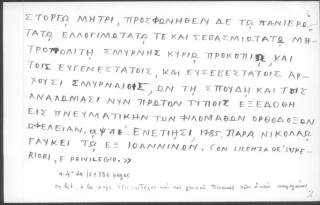 ΣΤΟΡΓῼ ΜΗΤΡΙ, ΠΡΟΣΦΩΝΗΘΕΝ ΔΕ Τῼ ΠΑΝΙΕΡΩ-
ΤΑΤῼ ΕΛΛΟΓΙΜΩΤΑΤῼ ΤΕ ΚΑΙ ΣΕΒΑΣΜΙΩΤΑΤῼ ΜΗ-
ΤΡΟΠΟΛΙΤῌ ΣΜΥΡΝΗΣ ΚΥΡΙῼ ΠΡΟΚΟΠΙῼ, ΚΑΙ
ΤΟΙΣ ΕΥΓΕΝΕΣΤΑΤΟΙΣ, ΚΑΙ ΕΥΣΕΒΕΣΤΑΤΟΙΣ ΑΡ-
ΧΟΥΣΙ ΣΜΥΡΝΑΙΟΙΣ, ΩΝ ΤΗ ΣΠΟΥΔΗ ΚΑΙ ΤΟΙΣ
ΑΝΑΛΩΜΑΣΙ ΝΥΝ ΠΡΩΤΟΝ ΤΥΠΟΙΣ ΕΞΕΔΟΘΗ
ΕΙΣ ΠΝΕΥΜΑΤΙΚΗΝ ΤΩΝ ΦΙΛΟΜΑΘΩΝ ΟΡΘΟΔΟΞΩΝ
ΩΦΕΛΕΙΑΝ. ͵ΑΨΠΕ. ΕΝΕΤΙΗΣΙ, 1785. ΠΑΡΑ ΝΙΚΟΛΑῼ
ΓΛΥΚΕΙ Τῼ ΕΞ ΙΩΑΝΝΙΝΩΝ. CON LICENZA DE' SUPE-
RIORI, E PRIVILEGIO. >>